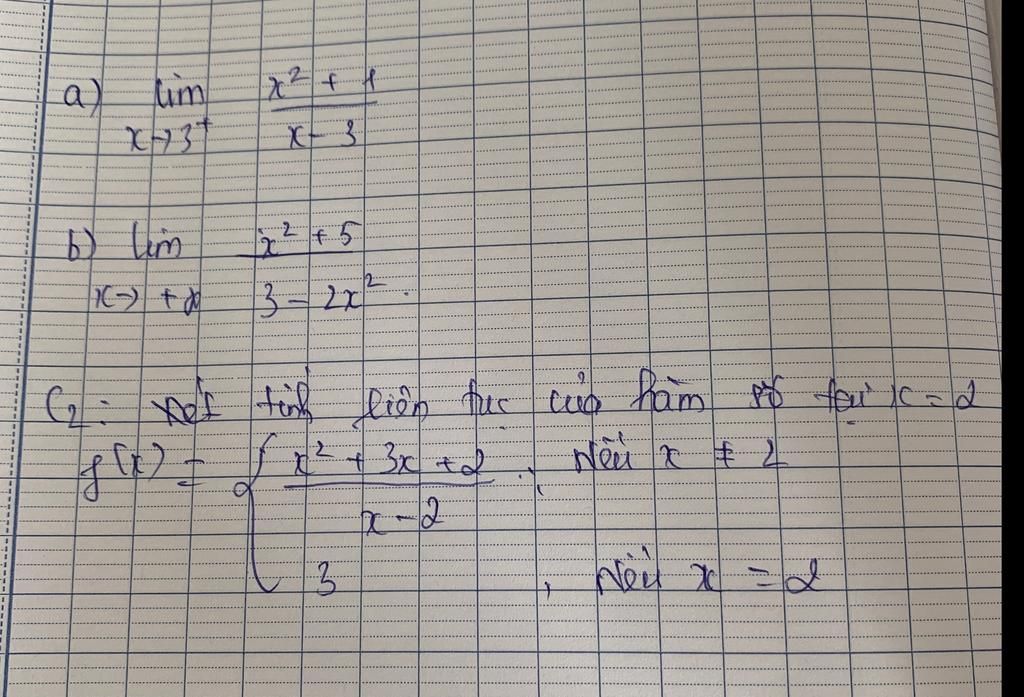 a) lim x² + 1
x→3⁺ x - 3
b) lim x² + 5
x→ +∞ 3 - 2x².
C₂: xét tính liên tục của hàm số tại x = 2
f(x) = { x² + 3x + 2, Nếu x ≠ 2
x - 2
3, Nếu x = 2